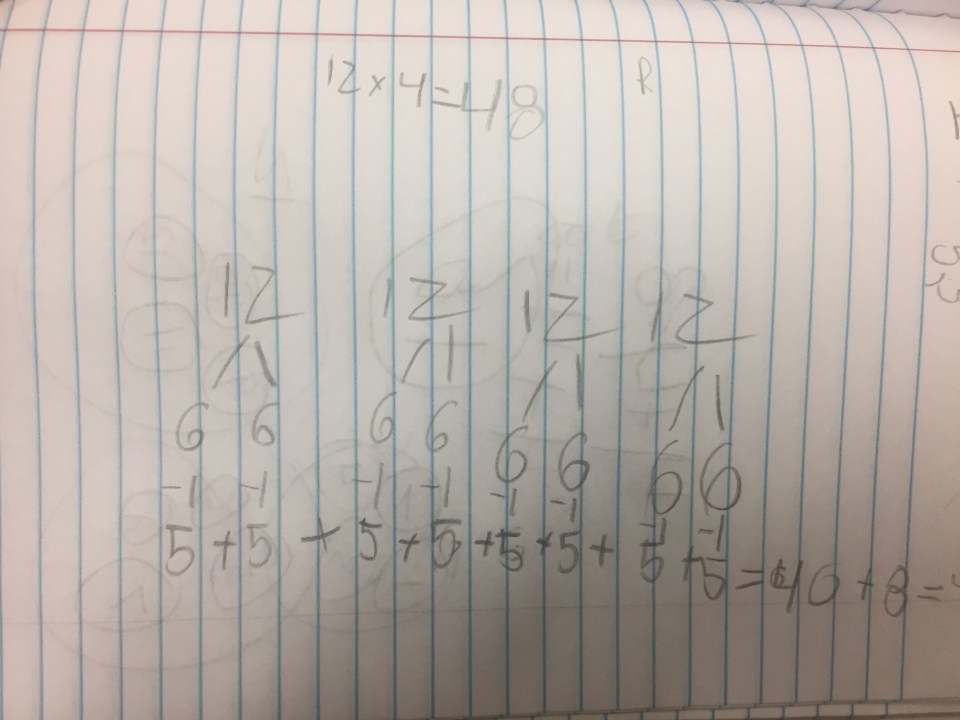 12 × 4 = 48
R
12 12 12 12
6 6 6 6 6 6 6 6
-1 -1 -1 -1 -1 -1 -1 -1
5 + 5 + 5 + 5 + 5 + 5 + 5 + 5 = 40 + 8 =